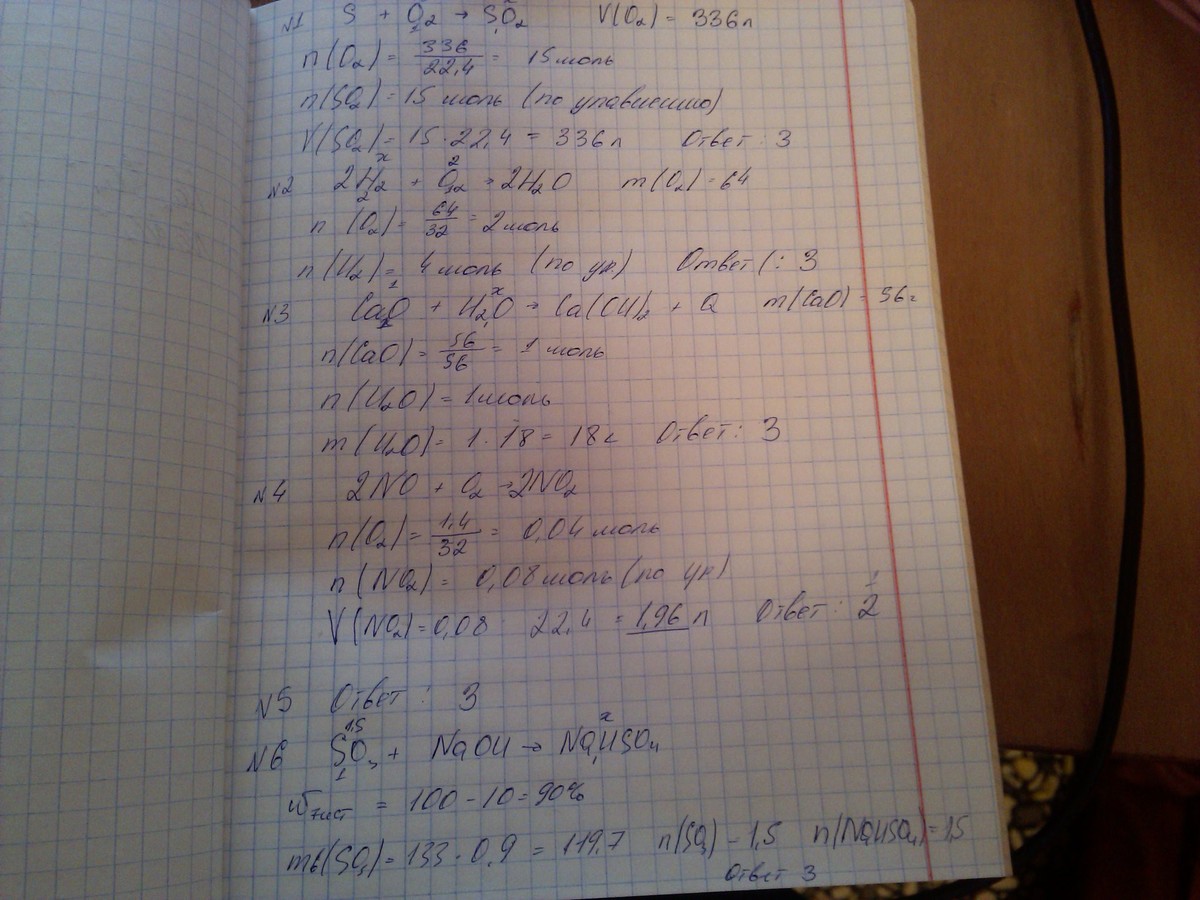 №1 S + O₂ → SO₂ V(O₂) = 336 л
n(O₂) = 336/22,4 = 15 моль
n(SO₂) = 15 моль (по уравнению)
V(SO₂) = 15 · 22,4 = 336 л Ответ : 3
№2 2H₂ + O₂ → 2H₂O m(O₂) = 64
n (O₂) = 64/32 = 2 моль
n(H₂) = 4 моль (по ур) Ответ : 3
№3 CaO + H₂O → Ca(OH)₂ + Q m(CaO) = 56г
n(CaO) = 56/56 = 1 моль
n(H₂O) = 1 моль
m(H₂O) = 1 · 18 = 18 г Ответ : 3
№4 2NO + O₂ → 2NO₂
n(O₂) = 1,4/32 = 0,04 моль
n(NO₂) = 0,08 моль (по ур)
V(NO₂) = 0,08 22,4 = 1,96 л Ответ : 2
№5 Ответ : 3
№6 SO₃ + NaOH → NaHSO₄
= 100 - 10 = 90%
(SO₃) = 133 · 0,9 = 119,7 n(SO₃) - 1,5 n(NaHSO₄) = 1,5
Ответ 3